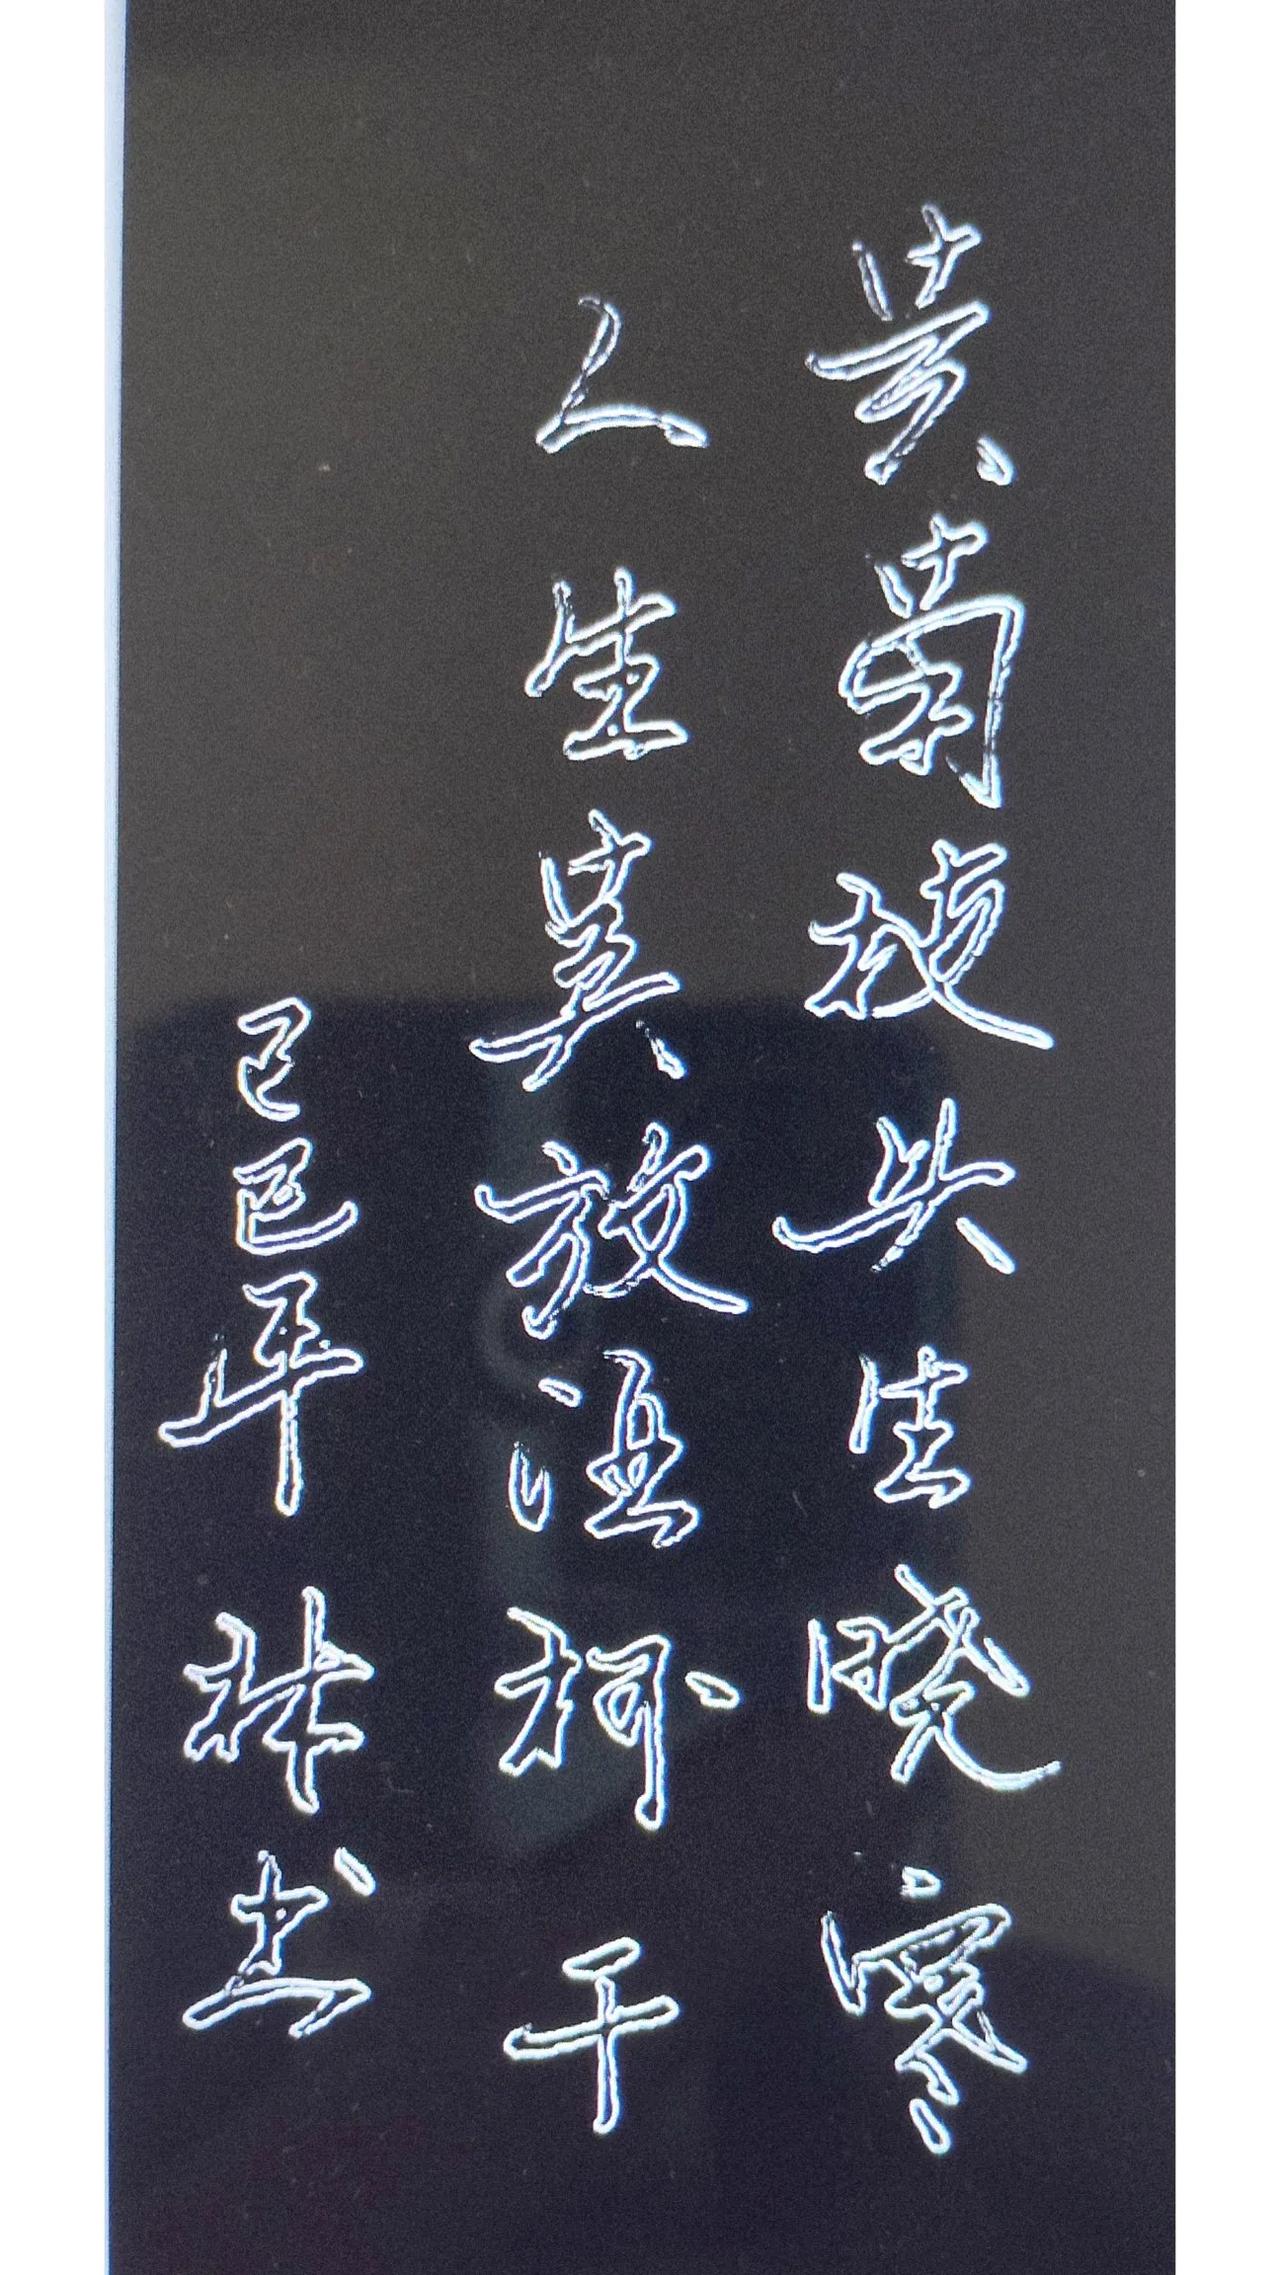 黄菊枝头生晓寒
人生莫放酒杯干
己巳年 林书